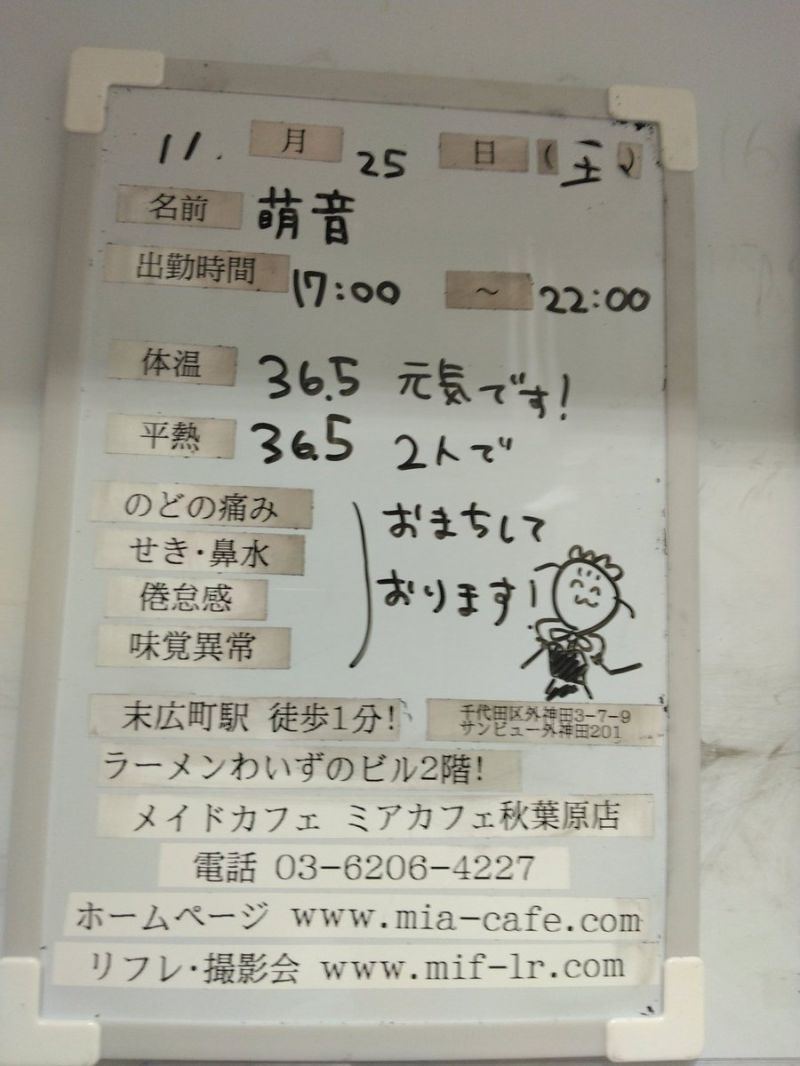 11.月25日(土)
名前 萌音
出勤時間 17:00 ～ 22:00
体温 36.5 元気です!
平熱 36.5 2人で
のどの痛み
せき・鼻水
倦怠感
味覚異常
おまちして
おります!
末広町駅 徒歩1分!
千代田区外神田3-7-9
サンビュー外神田201
ラーメンわいずのビル2階!
メイドカフェ ミアカフェ秋葉原店
電話 03-6206-4227
ホームページ www.mia-cafe.com
リフレ・撮影会 www.mif-lr.com